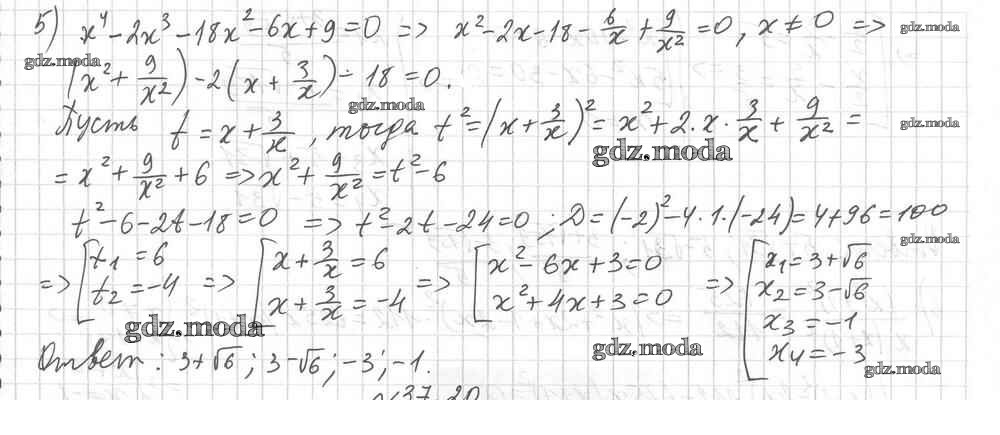 5) x⁴ - 2x³ - 18x² - 6x + 9 = 0 => x² - 2x - 18 - 6/x + 9/x² = 0, x ≠ 0 =>
gdz.moda
gdz.moda
(x² + 9/x²) - 2(x + 3/x) - 18 = 0.
gdz.moda
Пусть t = x + 3/x, тогда t² = (x + 3/x)² = x² + 2·x·3/x + 9/x² =
gdz.moda
gdz.moda
= x² + 9/x² + 6 => x² + 9/x² = t² - 6
t² - 6 - 2t - 18 = 0 => t² - 2t - 24 = 0; D = (-2)² - 4·1·(-24) = 4 + 96 = 100
gdz.moda
=> [t₁ = 6 t₂ = -4 => [x + 3/x = 6 x + 3/x = -4 => [x² - 6x + 3 = 0 x² + 4x + 3 = 0 => [x₁ = 3 + √6 x₂ = 3 - √6 x₃ = -1 x₄ = -3
gdz.moda
gdz.moda
gdz.moda
Ответ: 3 + √6; 3 - √6; -3; -1.